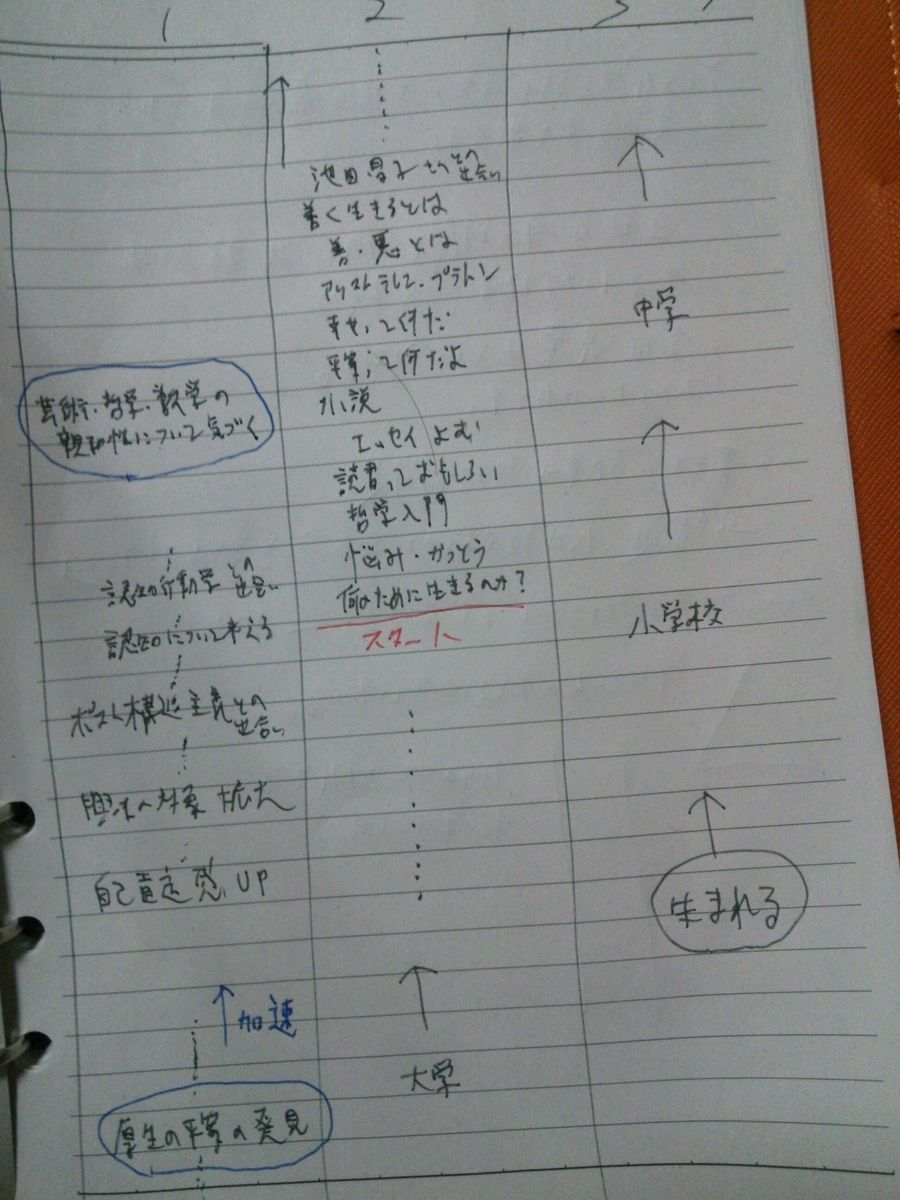 1
2
3
芸術・哲学・数学の
親和性について気づく
認知行動学との出会い
認知について考える
ポスト構造主義との出合い
興味の対象 拡大
自己肯定感 UP
加速
厚生の平等の発見
池田晶子さんとの出会い
善く生きるとは
善・悪とは
アリストテレス・プラトン
幸せって何だ
平等って何だよ
小説
エッセイ よむ
読書っておもしろい
哲学入門
悩み・かっとう
何のために生きるのか?
スタート
大学
中学
小学校
生まれる